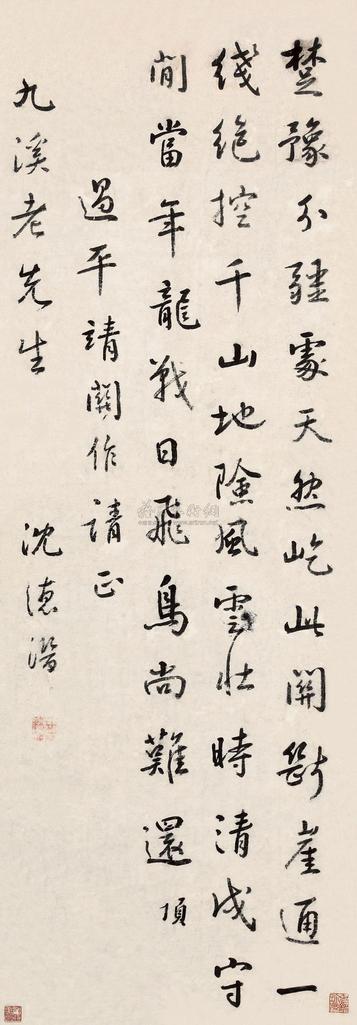 楚豫分疆處天然屹此關斷崖通一
綫絶控千山地險風雲壯時清戍守
閒當年龍戰日飛鳥尚難還頂
過平靖關作請正
九溪老先生 沈德潛